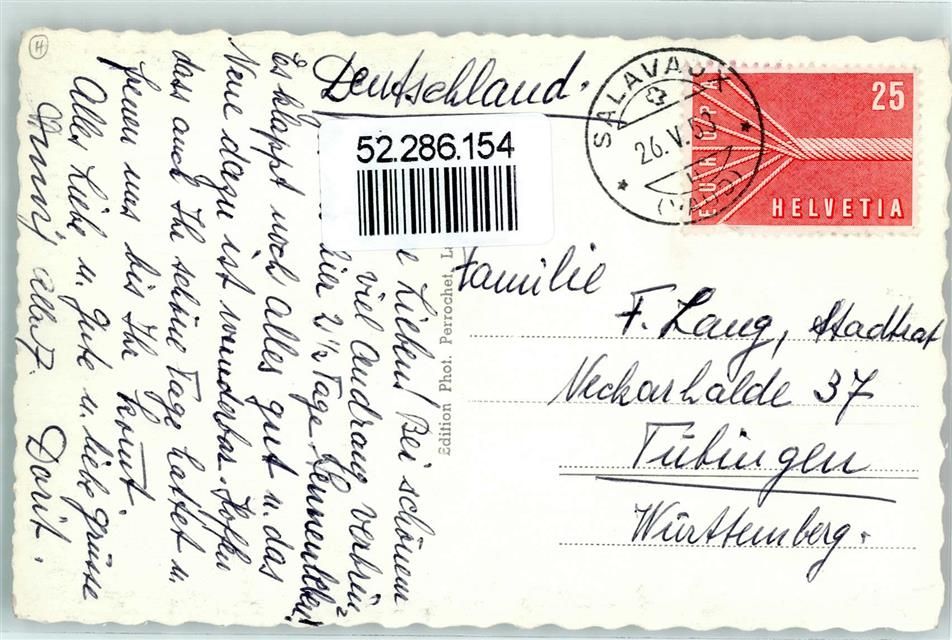 H
Deutschland.
SALAVAUX
26.V.
(VAUD)
EUROPA
25
HELVETIA
52.286.154
Familie
F. Lang, Stadtrat
Neckarhalde 37
Tübingen
Württemberg.
Edition Phot. Perrochet, L
Lieben! Bei schönem
viel Andrang verbrin
hier 2 1/2 Tage
Es klappt noch alles gut u. das
Neue dazu ist wunderbar. Hoffe
dass auch Ihr schöne Tage hattet u.
freuen uns bis Ihr kommt.
Alles Liebe u. Gute u. liebe Grüsse
Dorit.